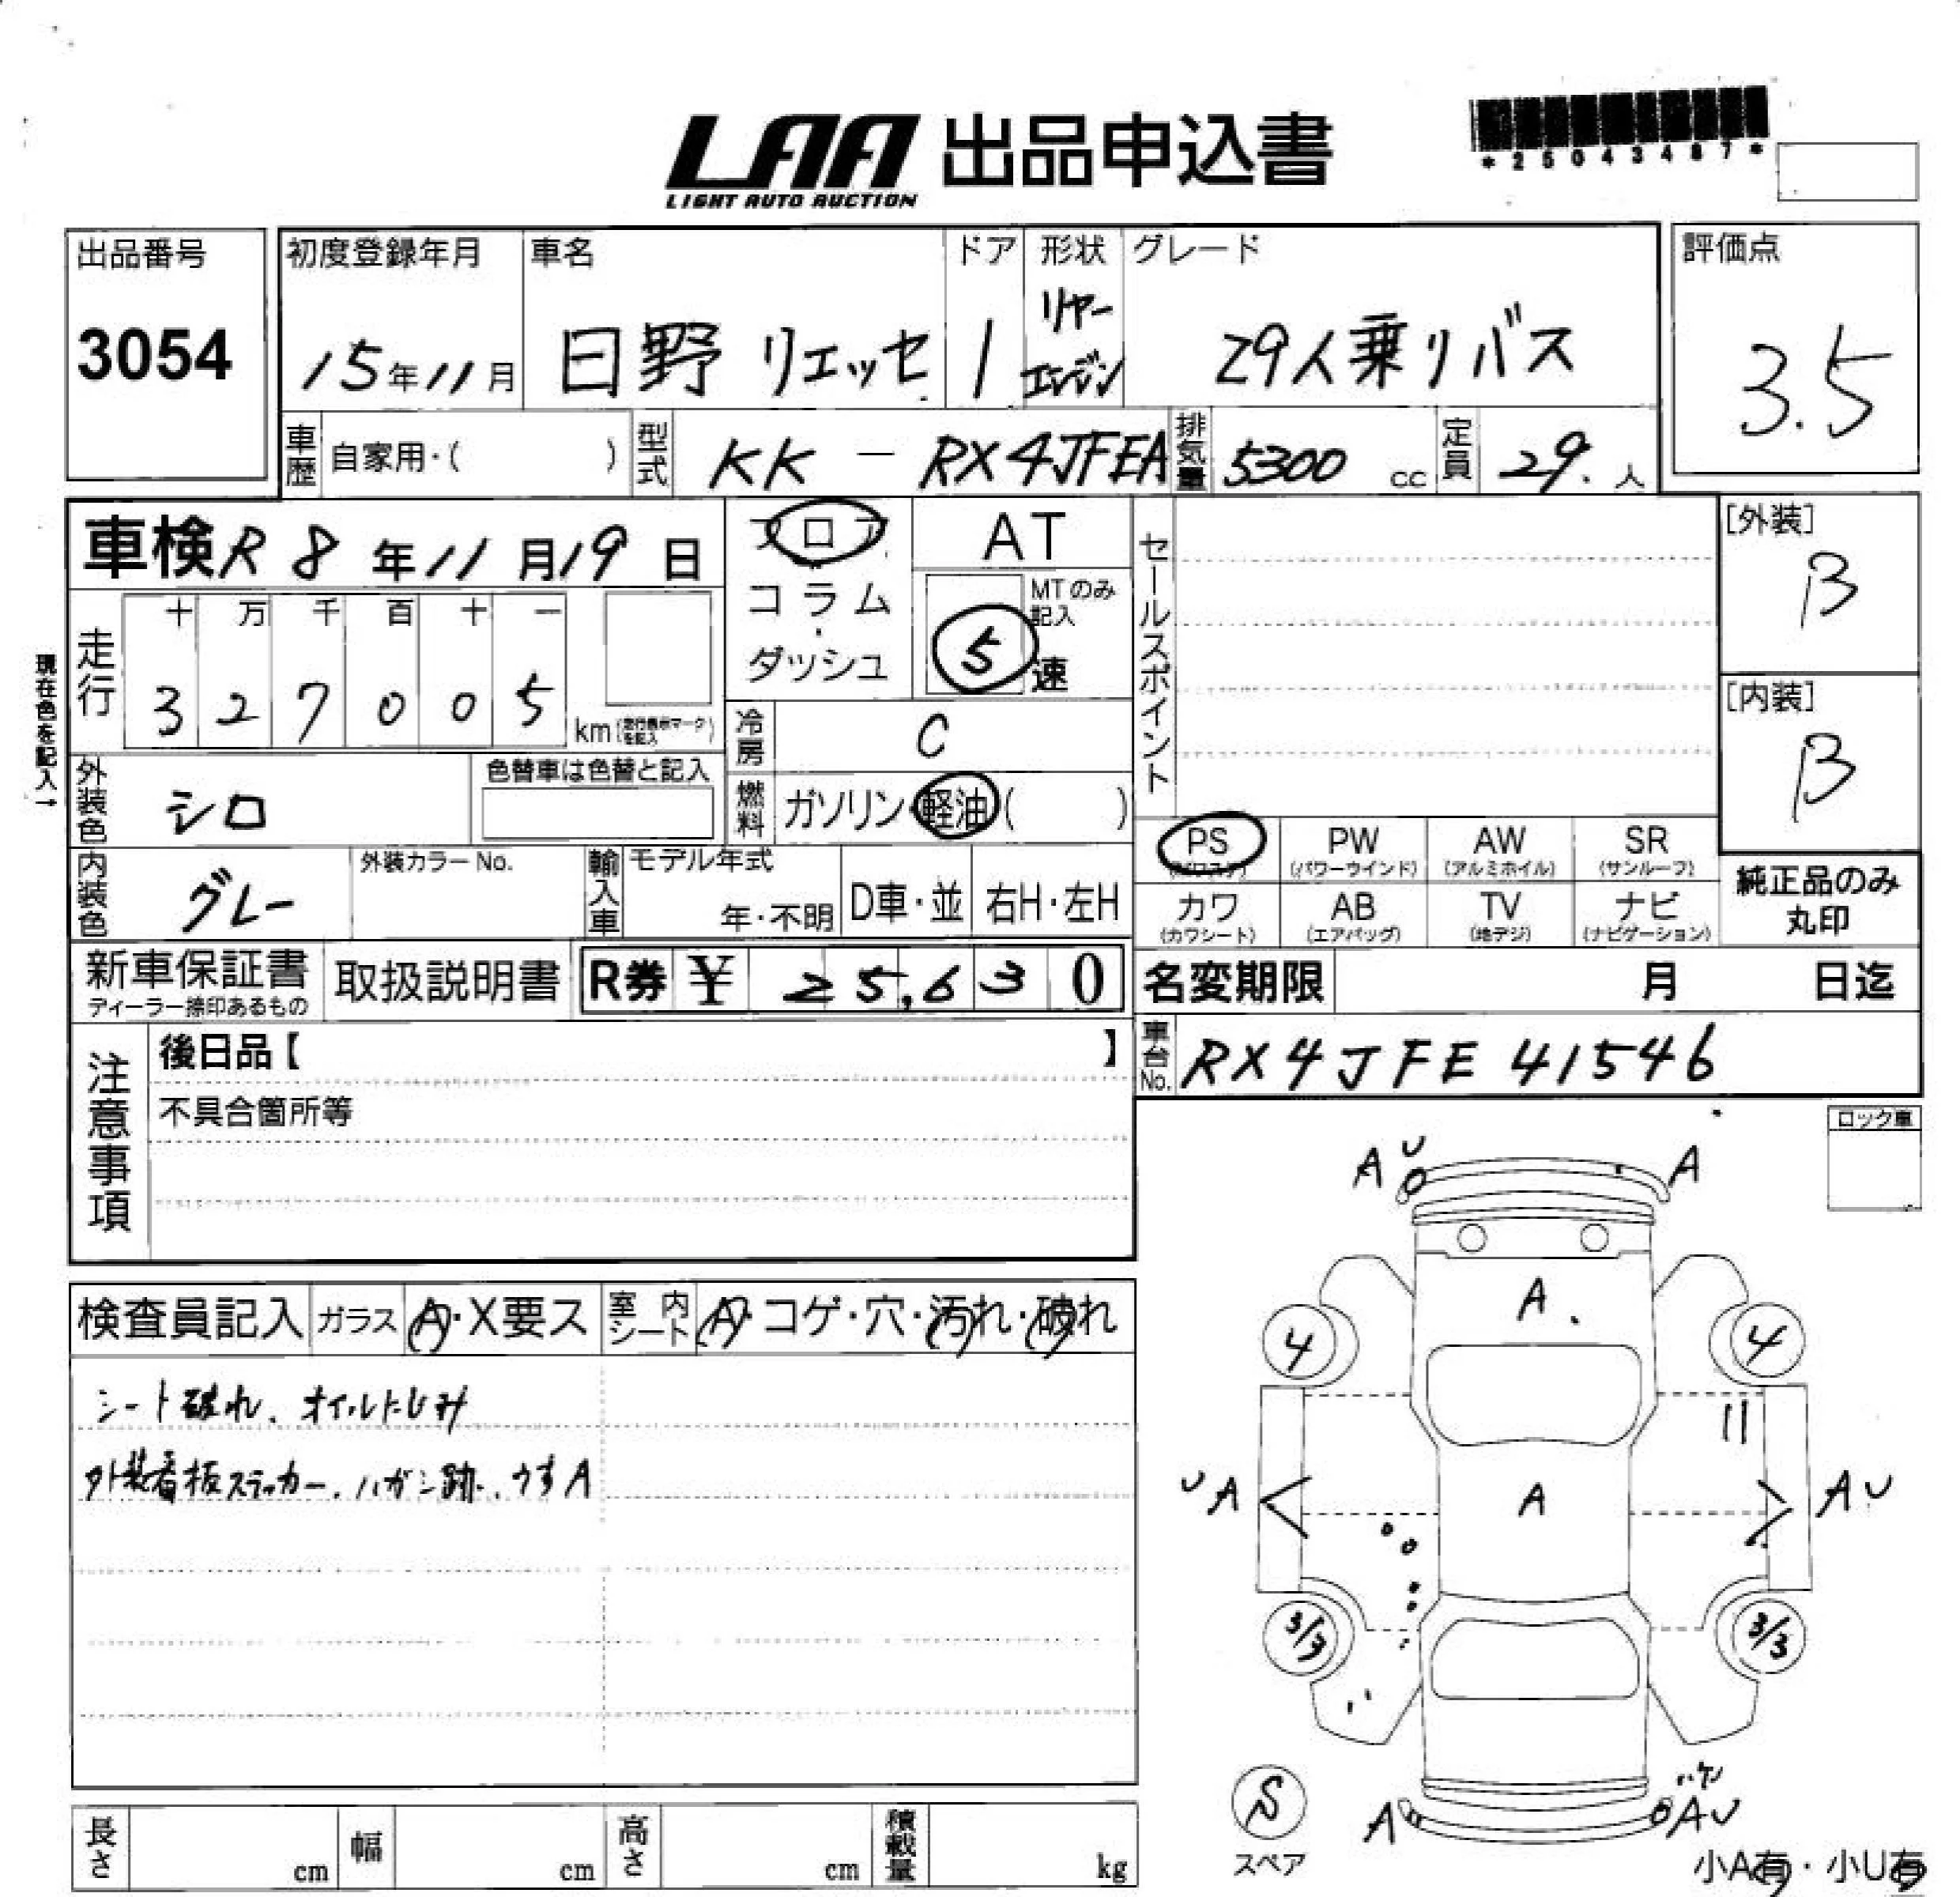 LAA 出品申込書
LIGHT AUTO AUCTION
*25043487*
出品番号
3054
初度登録年月
15年11月
車名
日野 リエッセ
ドア
1
形状
リヤー
エンジン
グレード
29人乗りバス
評価点
3.5
車歴 自家用・( )
型式 KK － RX4JFEA
排気量 5300 cc
定員 29. 人
車検 R8年11月19日
フロア
コラム
・
ダッシュ
AT
MTのみ
記入
5 速
セールスポイント
[外装]
B
[内装]
B
現在色を記入→
走行
十 万 千 百 十 一
3 2 7 0 0 5 km
冷房 C
燃料 ガソリン・軽油( )
外装色 シロ
色替車は色替と記入
内装色 グレー
外装カラーNo.
輸入車 モデル年式
年・不明
D車・並 右H・左H
PS
PW (パワーウインド)
AW (アルミホイル)
SR (サンルーフ)
カワ (カワシート)
AB (エアバッグ)
TV (地デジ)
ナビ (ナビゲーション)
純正品のみ
丸印
新車保証書
ディーラー捺印あるもの
取扱説明書
R券 ¥ 25,630
名変期限 月 日迄
車台No. RX4JFE41546
注意事項
後日品【 】
不具合箇所等
ロック車
検査員記入
ガラス A・X要ス
室内シート A・コゲ・穴・汚れ・破れ
シート破れ、オイルにじみ
外装看板ステッカー、ハガシ跡、うすA
A U
A
A.
4
4
A
U A
A U
3/3
3/3
S
スペア
A
ハゲ
A U
小A有・小U有
長さ cm
幅 cm
高さ cm
積載量 kg